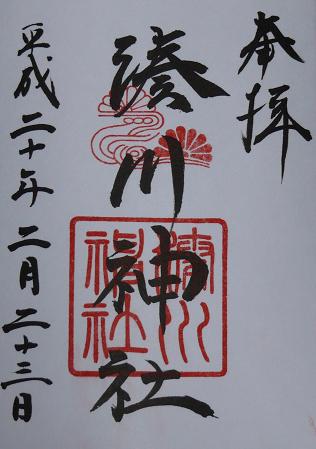 奉拝
湊川神社
湊川神社
平成二十年二月二十三日